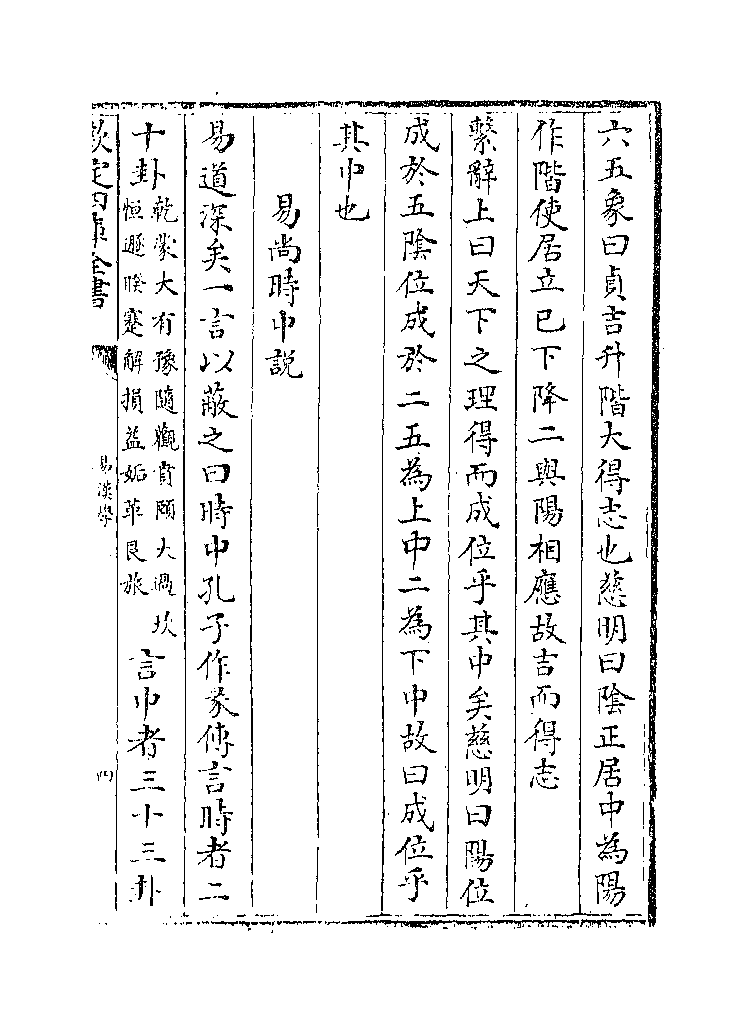 六五象曰貞吉升階大得志也慈明曰陰正居中為陽
作階使居立已下降二與陽相應故吉而得志
繫辭上曰天下之理得而成位乎其中矣慈明曰陽位
成於五陰位成於二五為上中二為下中故曰成位乎
其中也
易尚時中説
易道深矣一言以蔽之曰時中孔子作彖傳言時者二
十卦乾蒙大有豫隨觀賁頤大過坎
恒遯睽蹇解損益姤革艮旅
言中者三十三卦
欽定四庫全書
易漢學
四